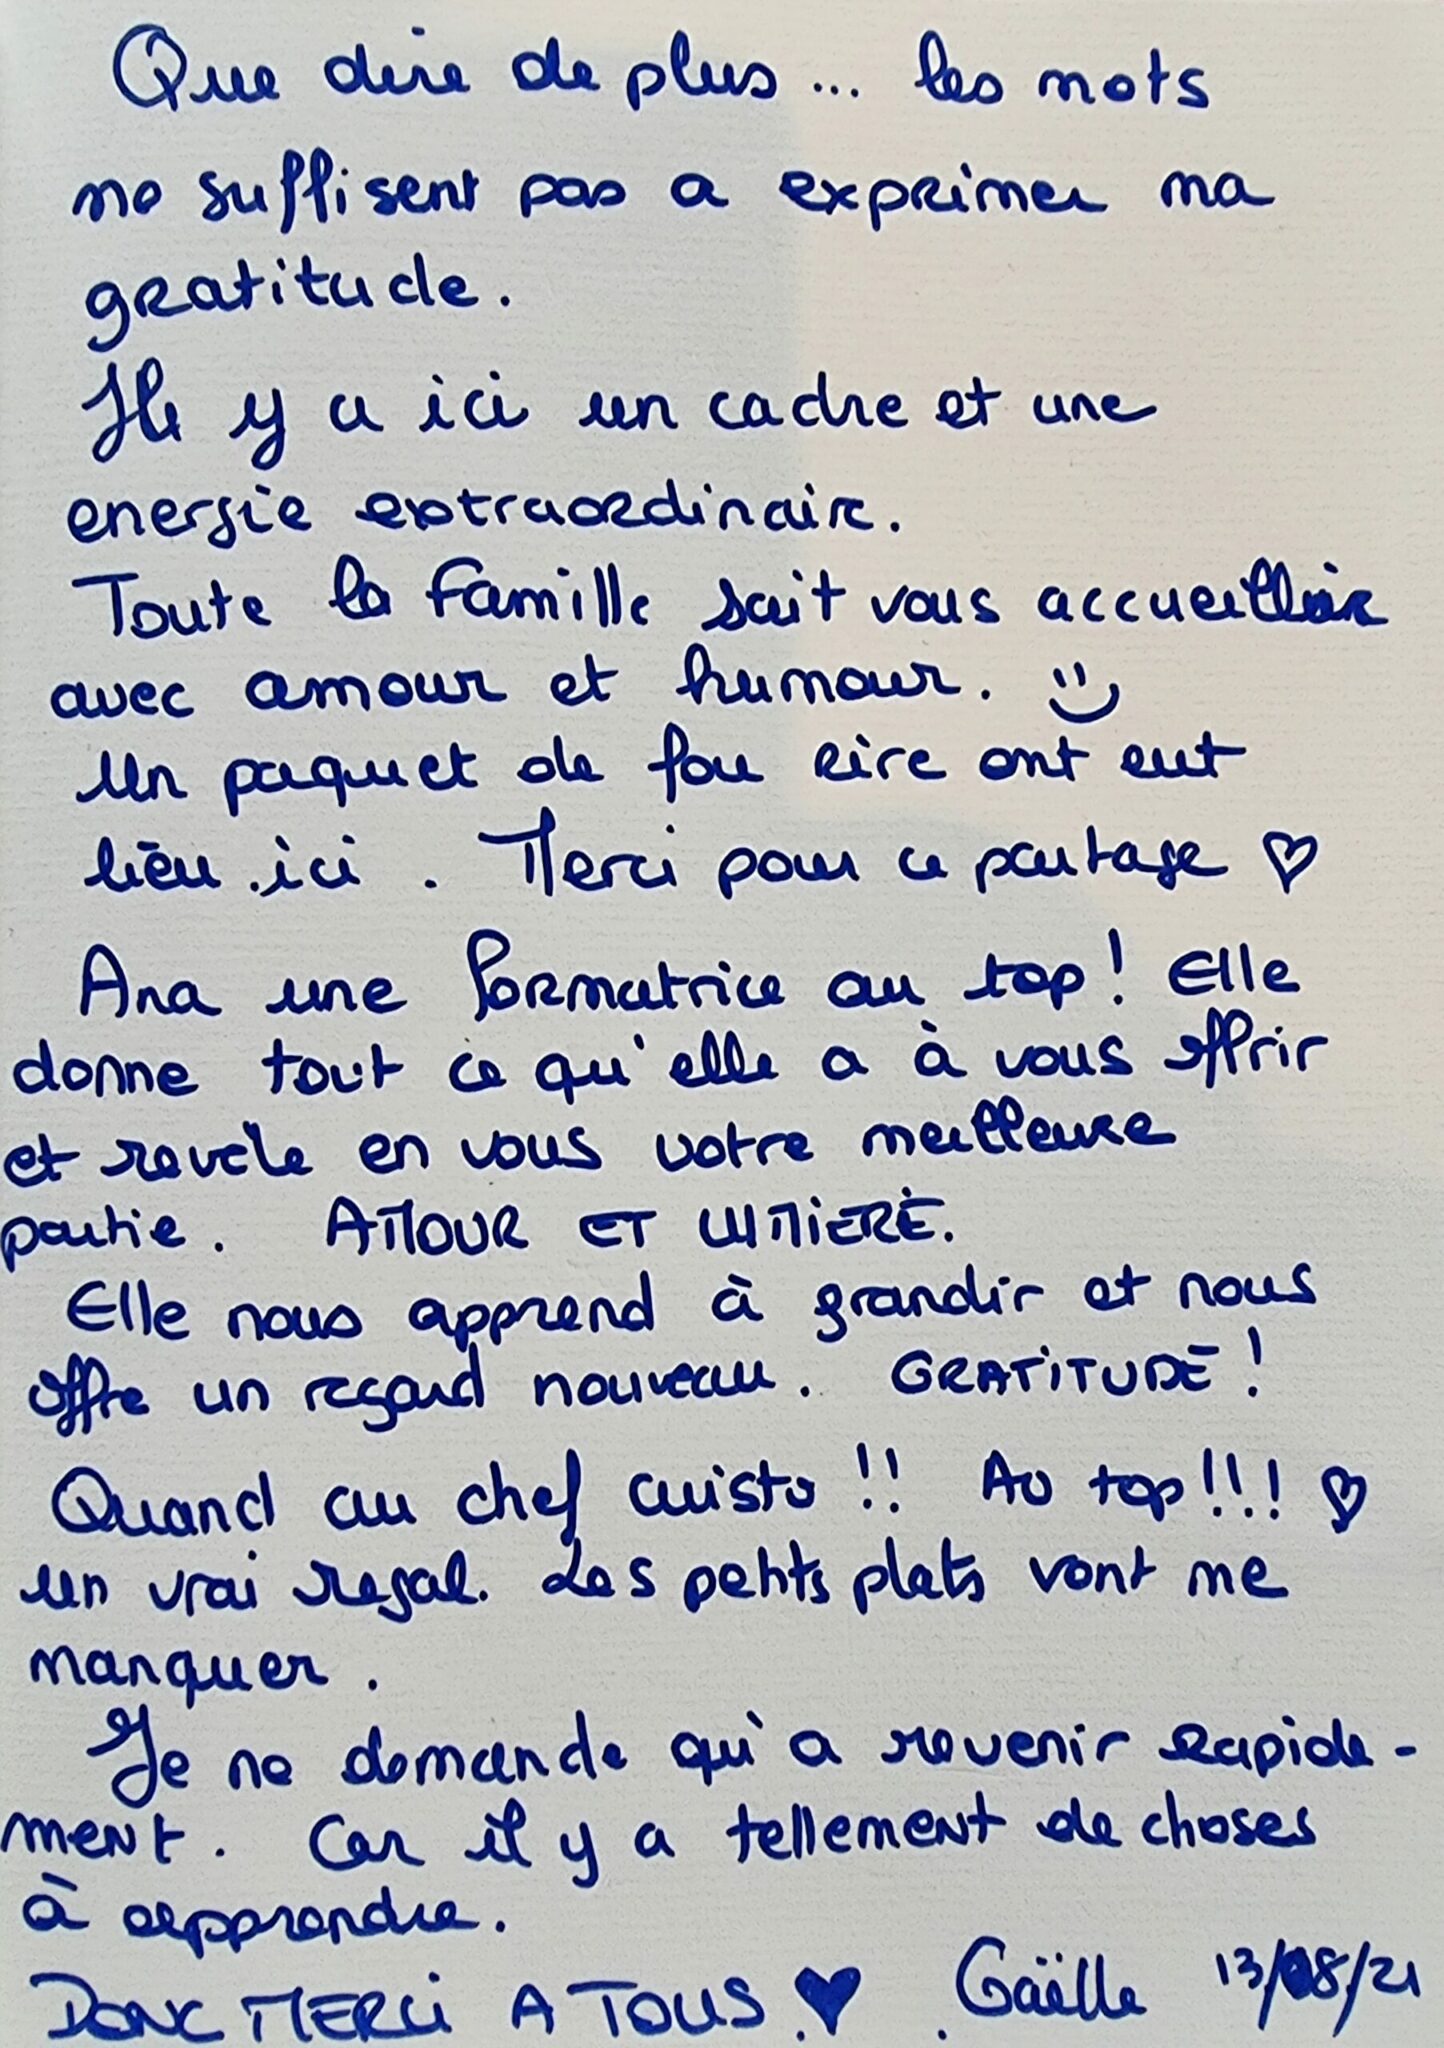 Que dire de plus... les mots
ne suffisent pas a exprimer ma
gratitude.
Il y a ici un cadre et une
energie extraordinaire.
Toute la famille sait vous accueillir
avec amour et humour.
Un paquet de fou rire ont eut
lieu ici. Merci pour ce partage ♡
Ana une formatrice au top! Elle
donne tout ce qu'elle a à vous offrir
et revèle en vous votre meilleure
partie. AMOUR ET LUMIERE.
Elle nous apprend à grandir et nous
offre un regard nouveau. GRATITUDE!
Quand au chef cuisto!! Au top!!! ♡
un vrai regal. Les petits plats vont me
manquer.
Je ne demande qu'a revenir rapide-
ment. Car il y a tellement de choses
à apprendre.
DONC MERCI A TOUS. ♥ Gaëlle 13/08/21